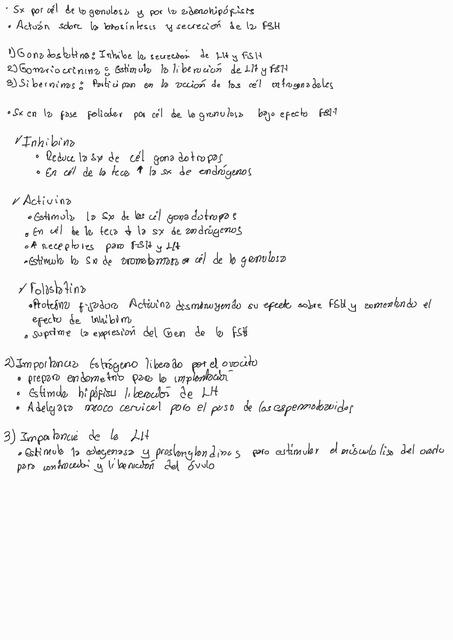 • Sx por cél de la granulosa y por la adenohipófisis
• Actúan sobre la biosíntesis y secreción de la FSH
1) Gonadostatina: Inhibe la secreción de LH y FSH
2) Gonariocrinina: Estimula la liberación de LH y FSH
3) Siberninas: Participan en la acción de las cél
• Sx en la fase folicular por cél de la granulosa bajo efecto FSH
✓ Inhibina
• Reduce la sx de cél gonadotropas
• En cél de la teca ↑ la sx de andrógenos
✓ Activina
• Estimula la Sx de las cél gonadotropas
• En cél de la teca ↓ la sx de andrógenos
• ↑ receptores para FSH y LH
• Estimula la Sx de aromatasa cél de la granulosa
✓ Folastatina
• Proteína fijadora Activina disminuyendo su efecto sobre FSH y aumentando el
efecto de inhibina
• suprime la expresión del Gen de la FSH
2) Importancia Estrógeno liberado por el ovocito
• prepara endometrio para la implantación
• Estimula hipófisis liberación de LH
• Adelgaza moco cervical para el paso de los espermatozoides
3) Importancia de la LH
• Estimula la colagenasa y prostaglandinas para estimular el músculo liso del ovario
para contracción y liberación del óvulo